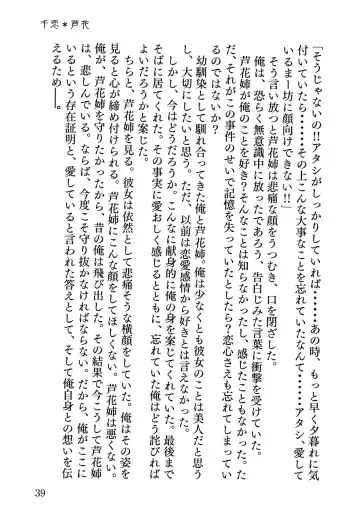 千恋＊芦花
「そうじゃないの!!アタシがしっかりしていれば・・・・・・あの時、もっと早く夕暮れに気
付いていたら・・・・・・その上こんな大事なことを忘れていたなんて・・・・・・アタシ、愛して
いるまー坊に顔向けできない!!」
そう言い放つと芦花姉は悲痛な顔をうつむき、口を閉ざした。
俺は、恐らく無意識中に放ったであろう、告白じみた言葉に衝撃を受けていた。
芦花姉がこの俺のことを好き？そんなことは知らなかったし、感じたこともなかった。た
だ、それがこの事件のせいで記憶を失っていたとしたら？恋心さえも忘れてしまってい
たとしたら？
幼馴染として馴れ合ってきた俺と芦花姉。俺は少なくとも彼女のことは美人だと思う
し、大切にしたいとも思う。ただ、以前は恋愛感情から好きとは言えなかった。
しかし、今はどうだろうか。こんなに献身的に俺の身を案じてくれていた。最後まで
そばに居てくれた。その事実に愛おしく感じるとともに、忘れていた俺はどう詫びれば
よいだろうかと案じた。
ちらと、芦花姉を見る。彼女は依然として悲痛そうな横顔をしていた。俺はその姿を
見ると心が締め付けられる。芦花姉にこんな顔をしてほしくない。芦花姉は悪くない。
俺が、芦花姉を守りたかったから、昔の俺は飛び出した。その結果で今こうして芦花姉
が、悲しんでいる。ならば、今度こそ守り抜かなければならない。だから、俺がここに
いるという存在証明と、愛していると言われた答えとして、そして俺自身との想いを伝
えるため――。
39